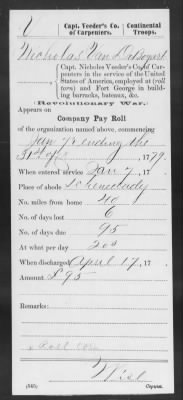 V
Capt. Veeder's Co. of Carpenters.
Continental Troops.
Nicholas Van De Bogert
Capt. Nicholas Veeder's Co. of Car-
penters in the service of the United
States of America, employed at (roll
torn) and Fort George in build-
ing barracks, bateaux, &c.
(Revolutionary War.)
Appears on
Company Pay Roll
of the organization named above, commencing
Jan 7, ending the
31st of 1779.
When entered service Jan 7, 17
Place of abode Schenectady
No. miles from home 40
No. of days lost 6
No. of days due 95
At what per day 20s
When discharged April 17, 17
Amount £95
Remarks:
Roll
(545)
Copyist.